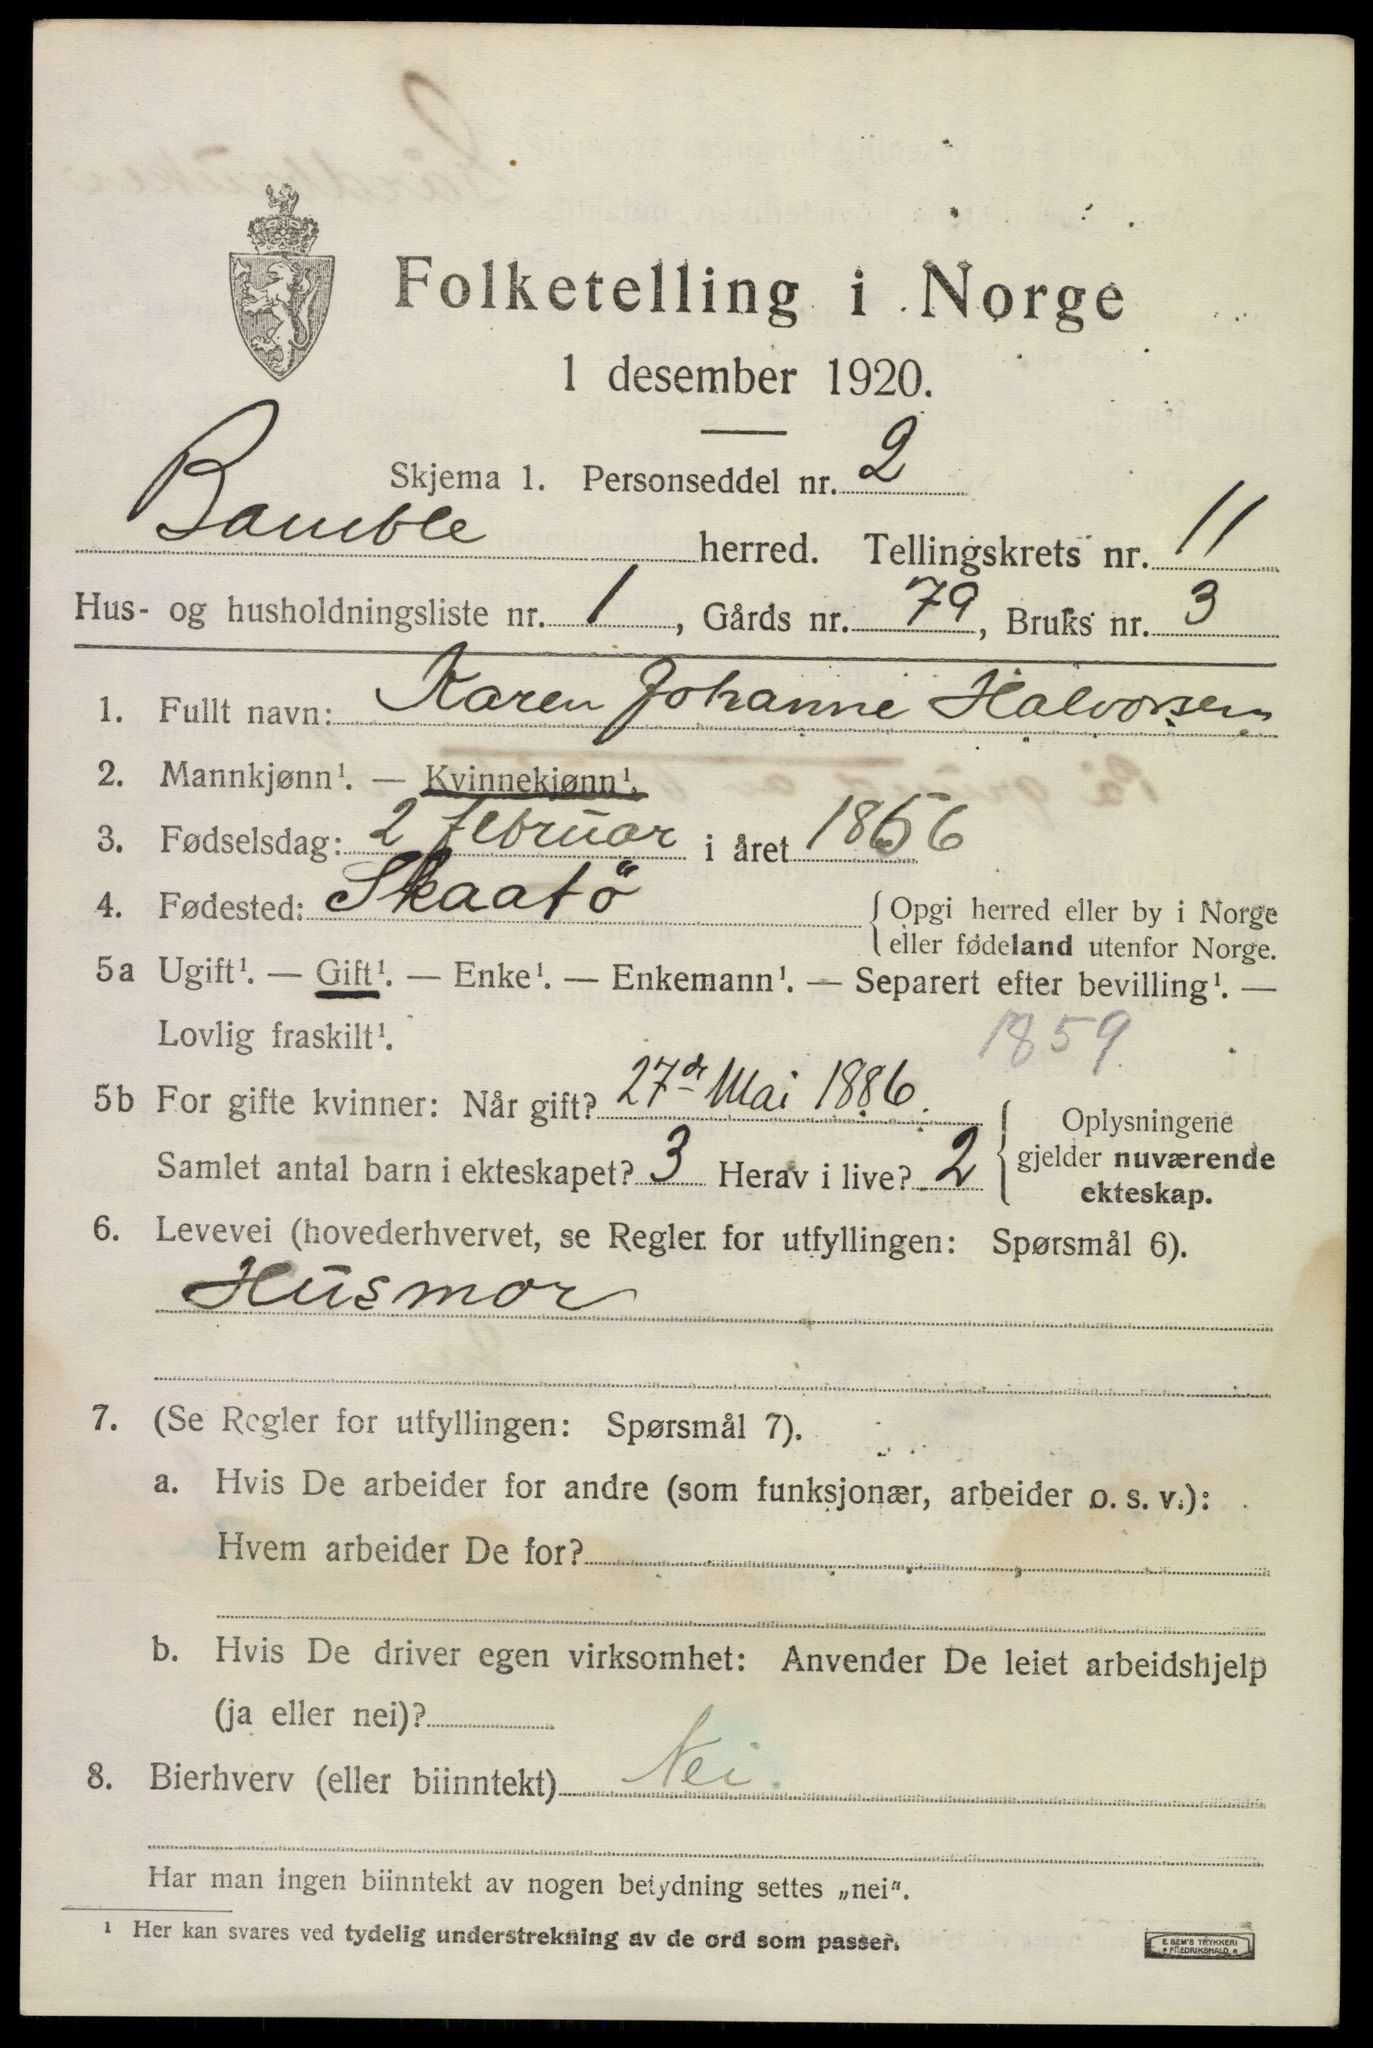 Folketelling i Norge
1 desember 1920.
Skjema 1. Personseddel nr. 2
Bamble herred. Tellingskrets nr. 11
Hus- og husholdningsliste nr. 1, Gårds nr. 79, Bruks nr. 3
1. Fullt navn: Karen Johanne Halvorsen
2. Mannkjønn¹. — Kvinnekjønn¹.
3. Fødselsdag: 2 februar i året 1856
4. Fødested: Skaatö { Opgi herred eller by i Norge
eller fødeland utenfor Norge.
5a Ugift¹. — Gift¹. — Enke¹. — Enkemann¹. — Separert efter bevilling¹. —
Lovlig fraskilt¹.
1859
5b For gifte kvinner: Når gift? 27de Mai 1886. { Oplysningene
Samlet antal barn i ekteskapet? 3 Herav i live? 2 gjelder nuværende
ekteskap.
6. Levevei (hovederhvervet, se Regler for utfyllingen: Spørsmål 6).
Husmor
7. (Se Regler for utfyllingen: Spørsmål 7).
a. Hvis De arbeider for andre (som funksjonær, arbeider o. s. v.):
Hvem arbeider De for?
b. Hvis De driver egen virksomhet: Anvender De leiet arbeidshjelp
(ja eller nei)?
8. Bierhverv (eller biinntekt) Nei.
Har man ingen biinntekt av nogen betydning settes „nei“.
¹ Her kan svares ved tydelig understrekning av de ord som passer.
E. SEM'S TRYKKERI
FREDRIKSHALD